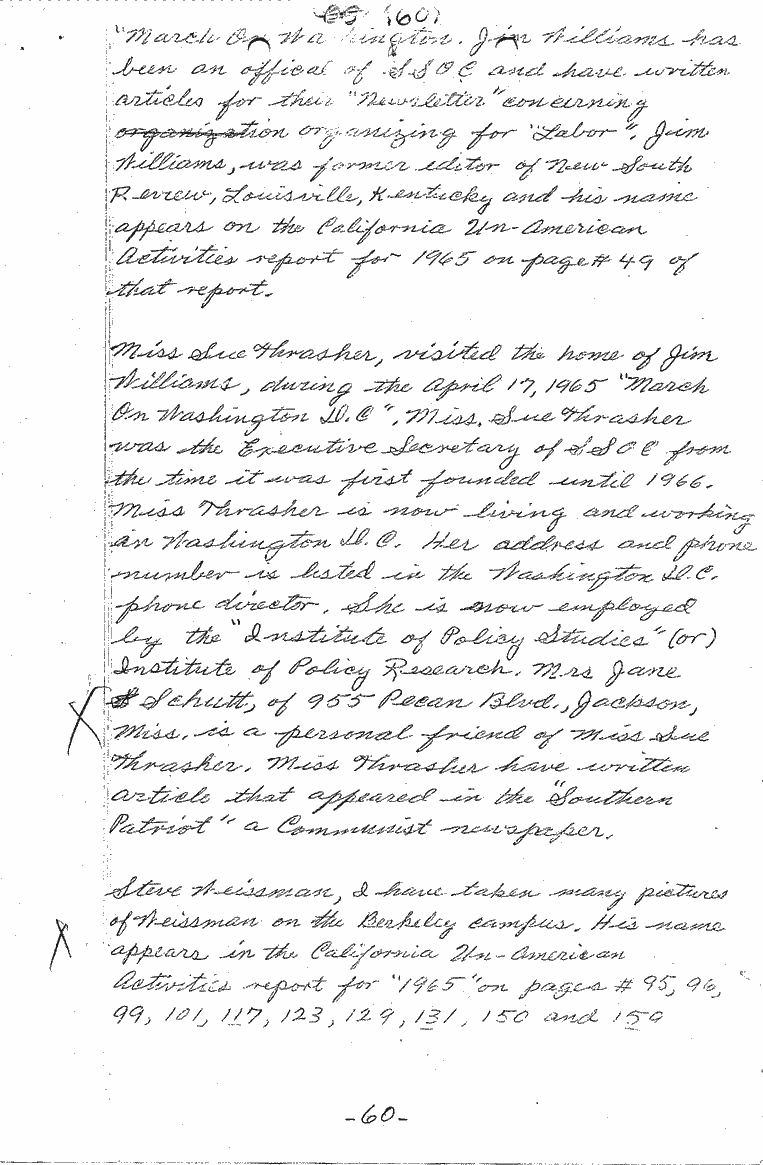 (60)
"March On Wa hington. Jim Williams has
been an offical of SSOC and have written
articles for their "Newsletter" concerning
organization organizing for "Labor". Jim
Williams, was former editor of New South
Review, Louisville, Kentucky and his name
appears on the California Un-American
Activities report for 1965 on page # 49 of
that report.
Miss Sue Thrasher, visited the home of Jim
Williams, during the April 17, 1965 "March
On Washington D.C". Miss. Sue Thrasher
was the Executive Secretary of SSOC from
the time it was first founded until 1966.
Miss Thrasher is now living and working
an Washington D.C. Her address and phone
number is listed in the Washington D.C.
phone director. She is now employed
by the "Institute of Policy Studies" (or)
Institute of Policy Research. Mrs Jane
Schutt, of 955 Pecan Blvd., Jackson,
X Miss. is a personal friend of Miss Sue
Thrasher. Miss Thrasher have written
article that appeared in the "Southern
Patriot" a Communist newspaper.
Steve Weissman, I have taken many pictures
of Weissman on the Berkeley campus. His name
X appears in the California Un-American
Activities report for "1965" on pages # 95, 96,
99, 101, 117, 123, 129, 131, 150 and 159
-60-